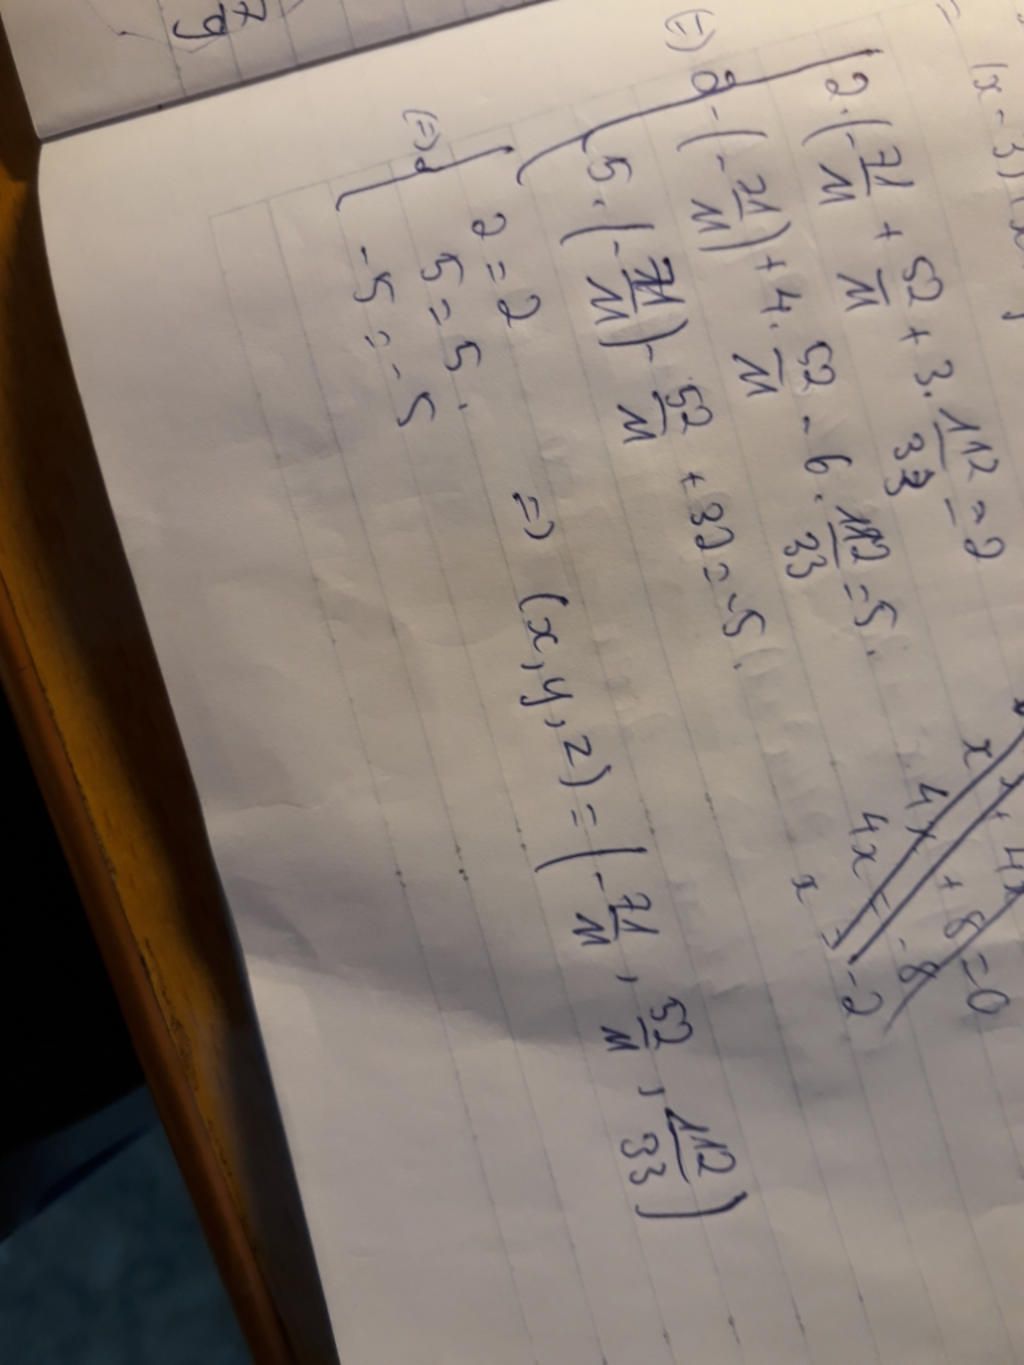 79
= (x - 3)(x
2·(-71/11 + 52/11 + 3·112/33 = 2
(=) -(-71/11) + 4·52/11 - 6·112/33 = 5.
5·(-71/11) - 52/11 + 32 = -5.
2 = 2
(=) 5 = 5. => (x, y, z) = (-71/11, 52/11, 112/33)
-5 = -5
4x + 8 = 0
4x = -8
x = -2